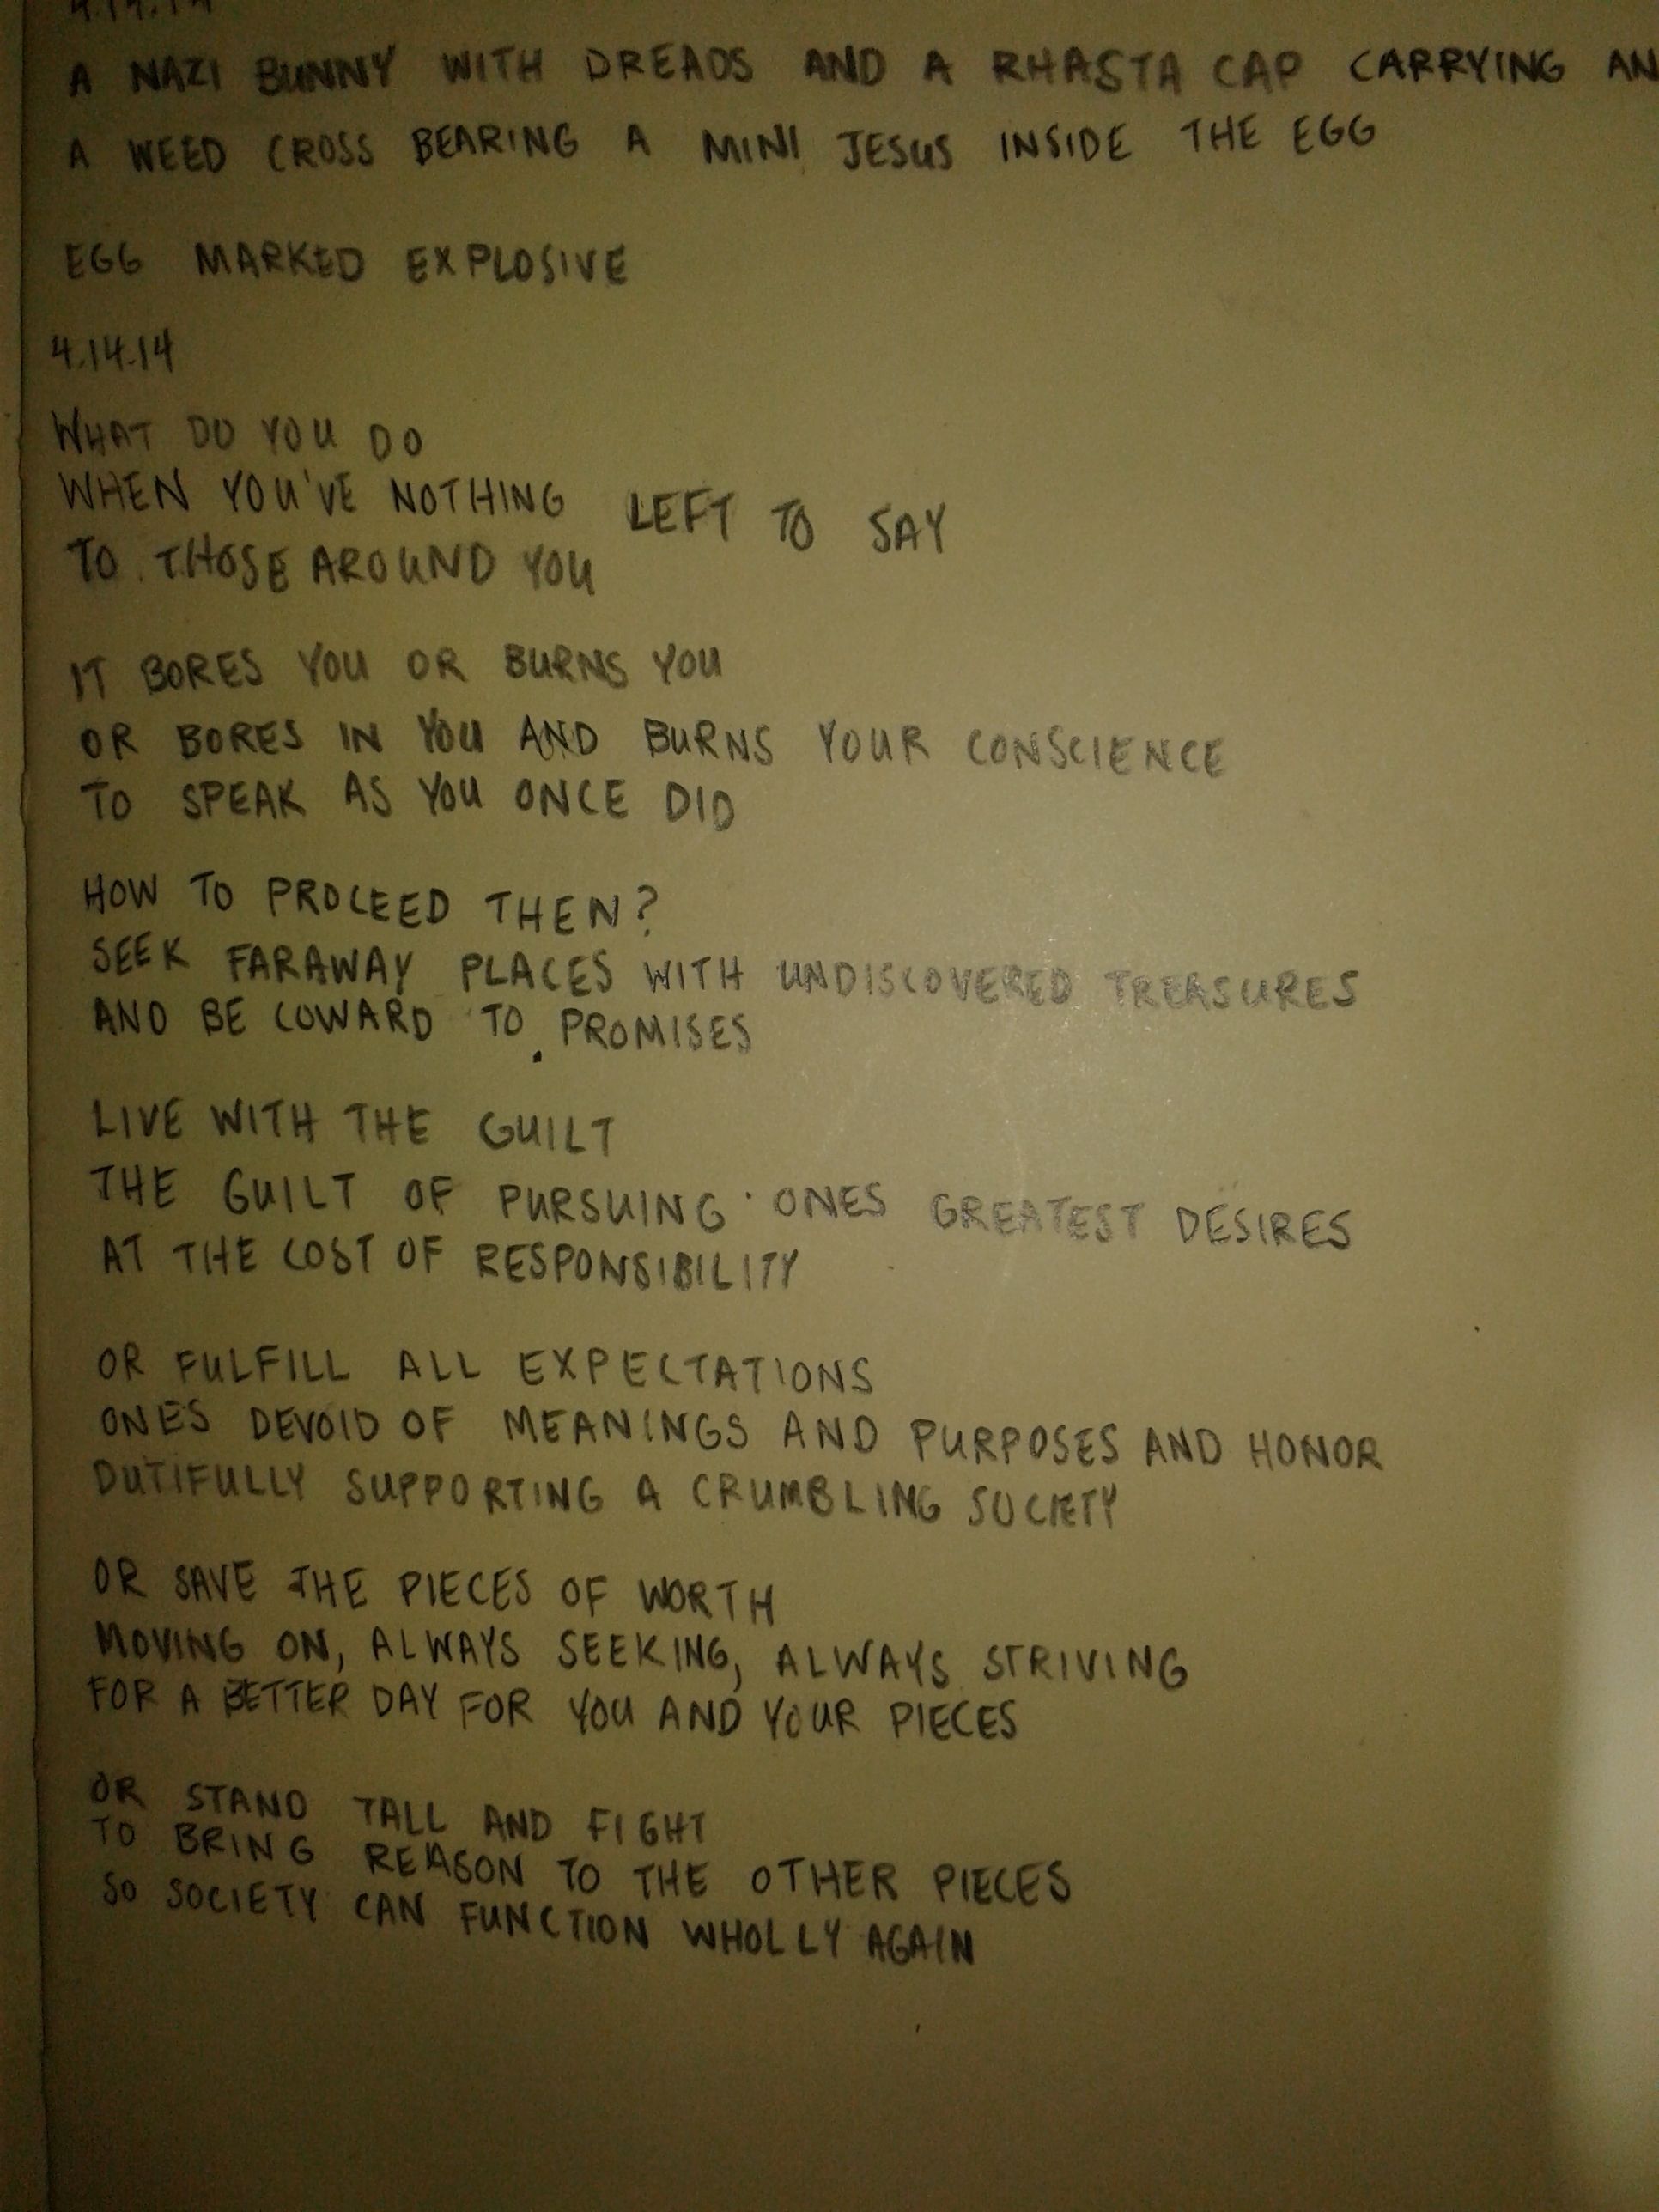 4.14.14
A NAZI BUNNY WITH DREADS AND A RHASTA CAP CARRYING AN
A WEED CROSS BEARING A MINI JESUS INSIDE THE EGG
EGG MARKED EXPLOSIVE
4.14.14
WHAT DO YOU DO
WHEN YOU'VE NOTHING LEFT TO SAY
TO THOSE AROUND YOU
IT BORES YOU OR BURNS YOU
OR BORES IN YOU AND BURNS YOUR CONSCIENCE
TO SPEAK AS YOU ONCE DID
HOW TO PROCEED THEN?
SEEK FARAWAY PLACES WITH UNDISCOVERED TREASURES
AND BE COWARD TO PROMISES
LIVE WITH THE GUILT
THE GUILT OF PURSUING ONES GREATEST DESIRES
AT THE COST OF RESPONSIBILITY
OR FULFILL ALL EXPECTATIONS
ONES DEVOID OF MEANINGS AND PURPOSES AND HONOR
DUTIFULLY SUPPORTING A CRUMBLING SOCIETY
OR SAVE THE PIECES OF WORTH
MOVING ON, ALWAYS SEEKING, ALWAYS STRIVING
FOR A BETTER DAY FOR YOU AND YOUR PIECES
OR STAND TALL AND FIGHT
TO BRING REASON TO THE OTHER PIECES
SO SOCIETY CAN FUNCTION WHOLLY AGAIN